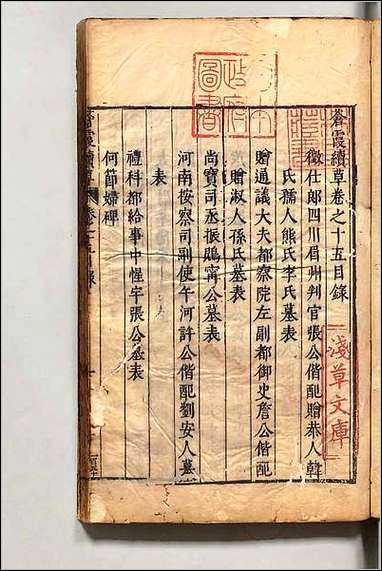 蒼霞續草卷之十五目錄
徵仕郎四川眉州判官張公偕配贈恭人韓
氏孺人熊氏李氏墓表
贈通議大夫都察院左副都御史詹公偕配
贈淑人孫氏墓表
尚寶司丞振鷗甯公墓表
河南按察司副使午河許公偕配劉安人墓
表
禮科都給事中惺宇張公墓表
何節婦碑
淺草文庫
圖書